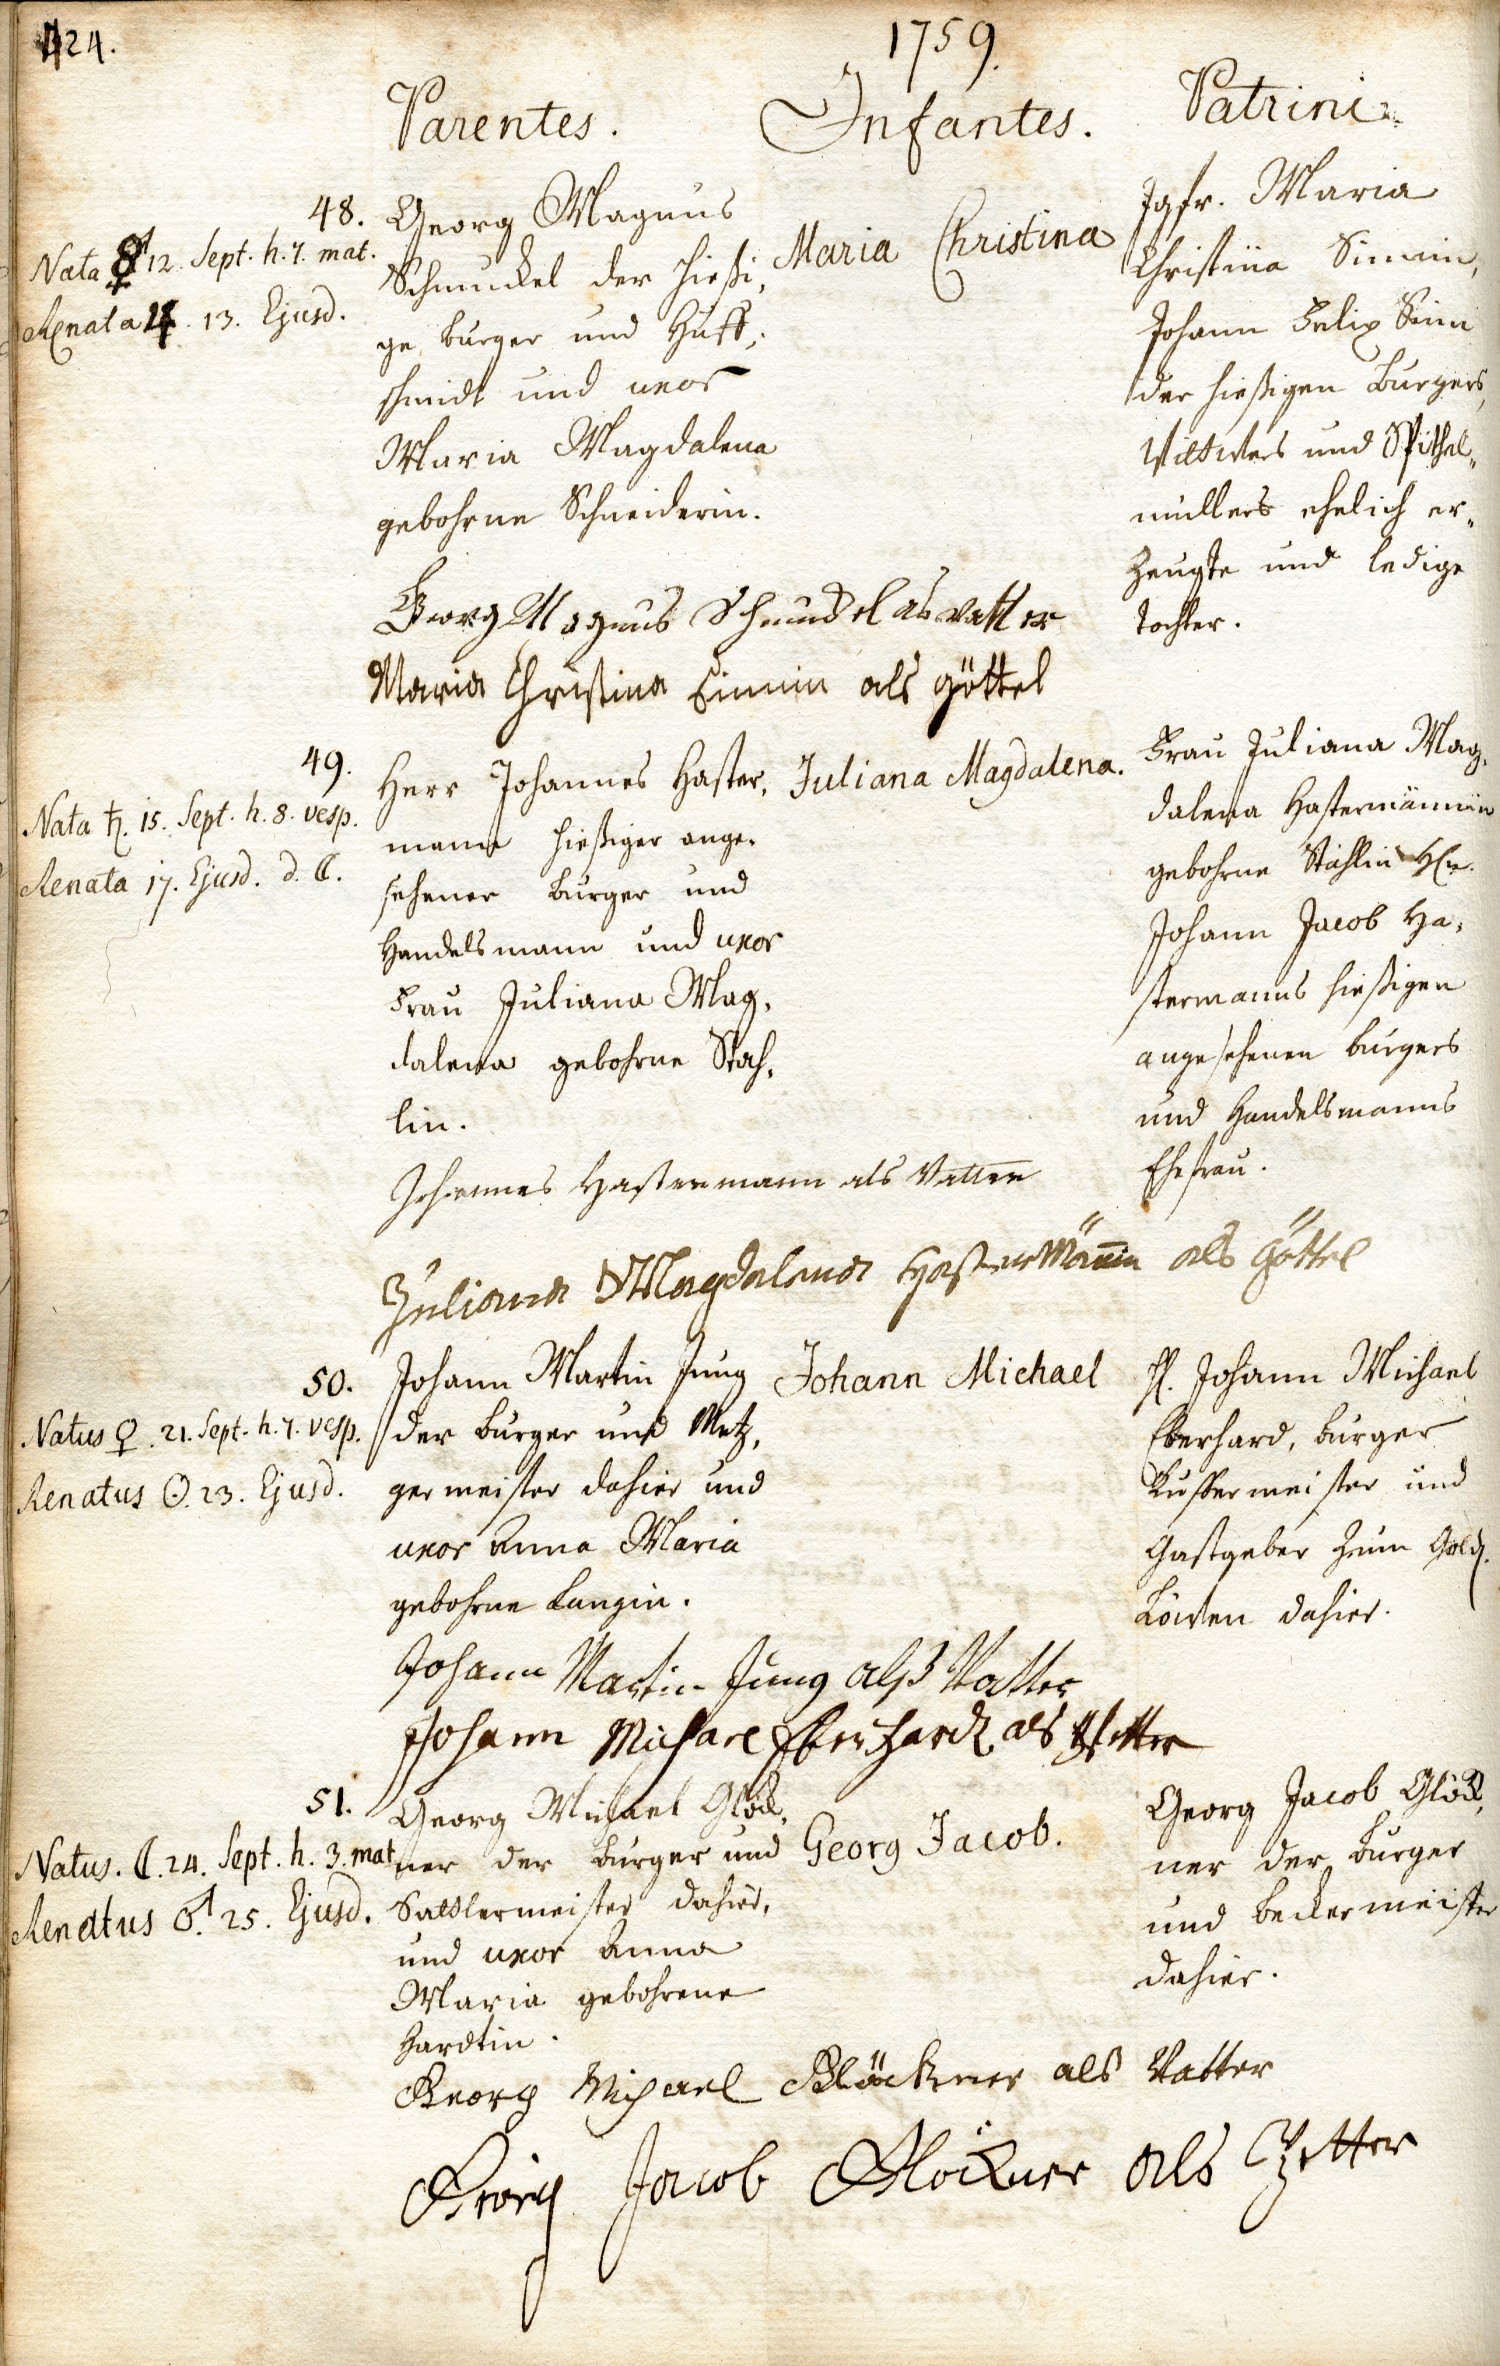 424.
1759.
Parentes.
Infantes.
Patrini.
48.
Nata ☿ 12. Sept. h. 7. mat.
Renata ♃. 13. Ejusd.
Georg Magnus
Schmuckel der hießi,
ge burger und Huff,
schmidt und uxor
Maria Magdalena
gebohrne Schneiderin.
Maria Christina
Jgfr. Maria
Christina Simmin,
Johann Felix Simm
der hießigen Burgers,
Wittwers und Spithel,,
müllers ehelich er,,
zeugte und ledige
tochter.
Georg Magnus als vatter
Maria Christina Simmin als göttel
49.
Nata ♄. 15. Sept. h. 8. vesp.
Renata 17. Ejusd. d. ☾.
Herr Johannes Haster,
mann hießiger ange,
sehener burger und
Handelsmann und uxor
Frau Juliana Mag,
dalena gebohrne Stäh,
lin.
Juliana Magdalena.
Frau Juliana Mag,
dalena Hastermännin
gebohrne Stählin H.
Johann Jacob Ha,
stermanns hießigen
angesehenen burgers
und Handelsmanns
Ehefrau.
Johannes Hastermann als Vatter
Juliana Magdalena Hastermänin als Göttel
50.
Natus ♀. 21. Sept. h. 7. vesp.
Renatus ☉. 23. Ejusd.
Johann Martin Jung
der burger und Metz,
germeister dahier und
uxor Anna Maria
gebohrne Langin.
Johann Michael
H. Johann Michael
Eberhard, burger
Kuffermeister und
Gastgeber zum Gold.
Löwen dahier.
Johann Martin Jung alß Vatter
Johann Michael Eberhardt als Pfetter
51.
Natus. ☾. 24. Sept. h. 3. mat.
Renatus ♂. 25. Ejusd.
Georg Michael Glöck,
ner der burger und
Sattlermeister dahier,
und uxor Anna
Maria gebohrene
Hardtin.
Georg Jacob.
Georg Jacob Glöck,
ner der burger
und beckermeister
dahier.
Georg Michael Glöckner als Vatter
Georg Jacob Glöckner als Pfetter